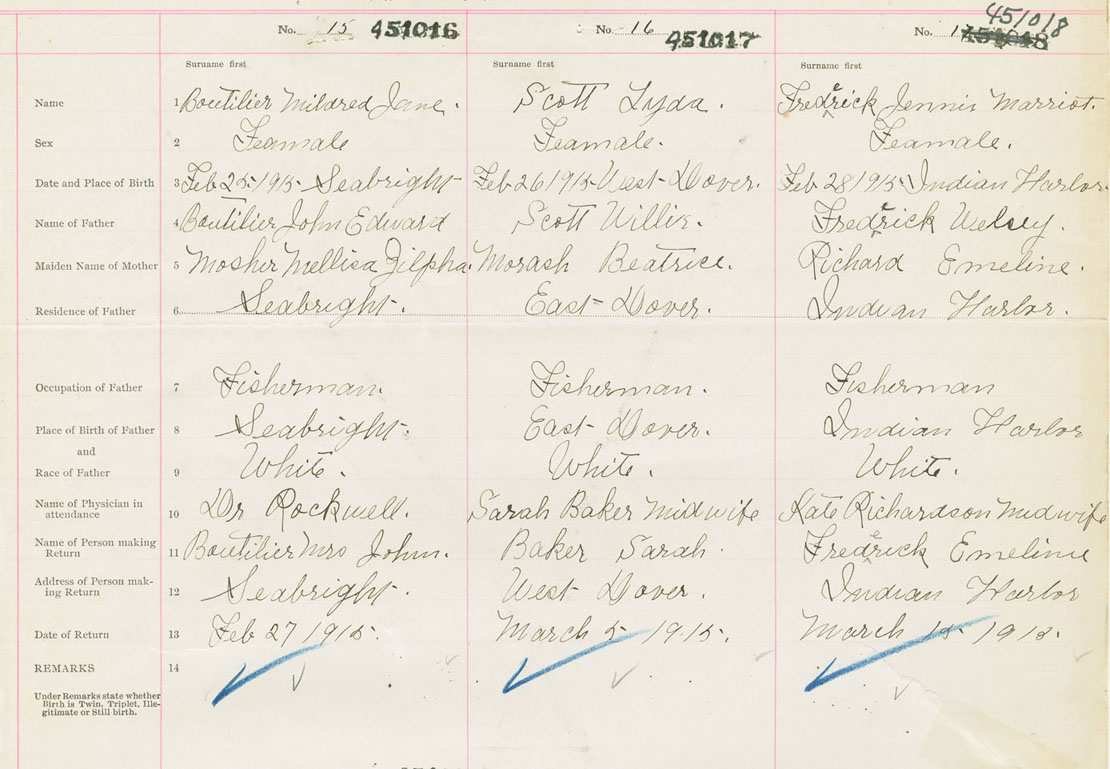 No. 15 451016 No. 16 451017 No. 451018 451018
Surname first Surname first Surname first
Name 1 Boutilier Mildred Jane. Scott Lyda. Fredrick Jennis Marriot.
Sex 2 Feamale Feamale. Feamale.
Date and Place of Birth 3 Feb 25 1915 Seabright Feb 26 1915 West Dover. Feb 28 1915 Indian Harlor.
Name of Father 4 Boutilier John Edward Scott Willis. Fredrick Welsey.
Maiden Name of Mother 5 Mosher Mellisa Zilpha. Morash Beatrice. Richard Emeline.
Residence of Father 6 Seabright. East Dover. Indian Harlor.
Occupation of Father 7 Fisherman. Fisherman. Fisherman
Place of Birth of Father 8 Seabright. East Dover. Indian Harlor
and
Race of Father 9 White. White. White.
Name of Physician in
attendance 10 Dr Rockwell. Sarah Baker Midwife Kate Richardson Midwife
Name of Person making
Return 11 Boutilier Mrs John. Baker Sarah. Fredrick Emeline
Address of Person mak-
ing Return 12 Seabright. West Dover. Indian Harlor
Date of Return 13 Feb 27 1915. March 5 1915. March 15 1915.
REMARKS 14
Under Remarks state whether
Birth is Twin, Triplet, Ille-
gitimate or Still birth.